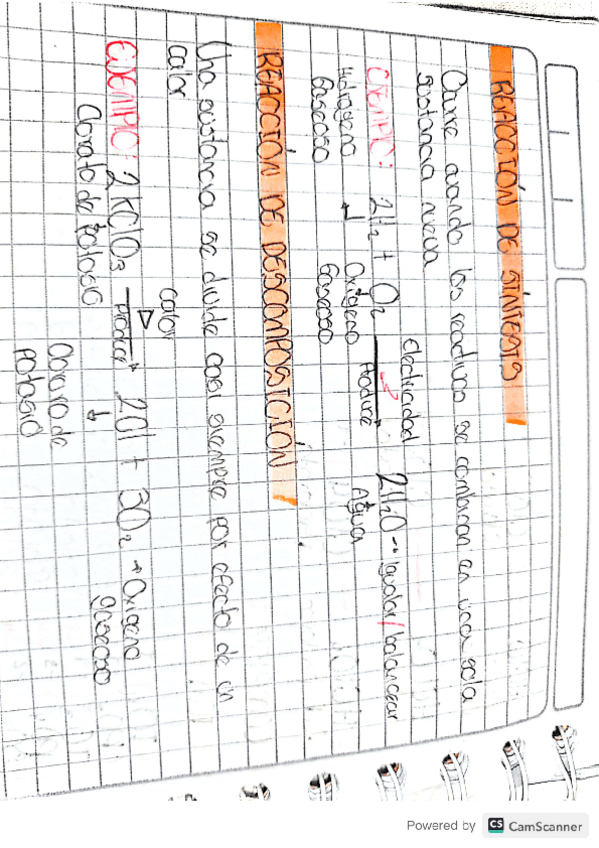 REACCIÓN DE SÍNTESIS
Ocurre cuando los reactivos se combinan en una sola
sustancia nueva
electricidad
EJEMPLO: 2H₂ + O₂ → 2H₂O → igualar/balancear
Produce
Hidrógeno Oxígeno Agua
Gaseoso Gaseoso
REACCIÓN DE DESCOMPOSICIÓN
Una sustancia se divide casi siempre por efecto de un
calor
calor
Δ
EJEMPLO: 2KClO₃ → 2Cl + 3O₂ → Oxígeno
Produce
Clorato de Potasio ↓ gaseoso
Cloruro de
potasio
Powered by CS CamScanner